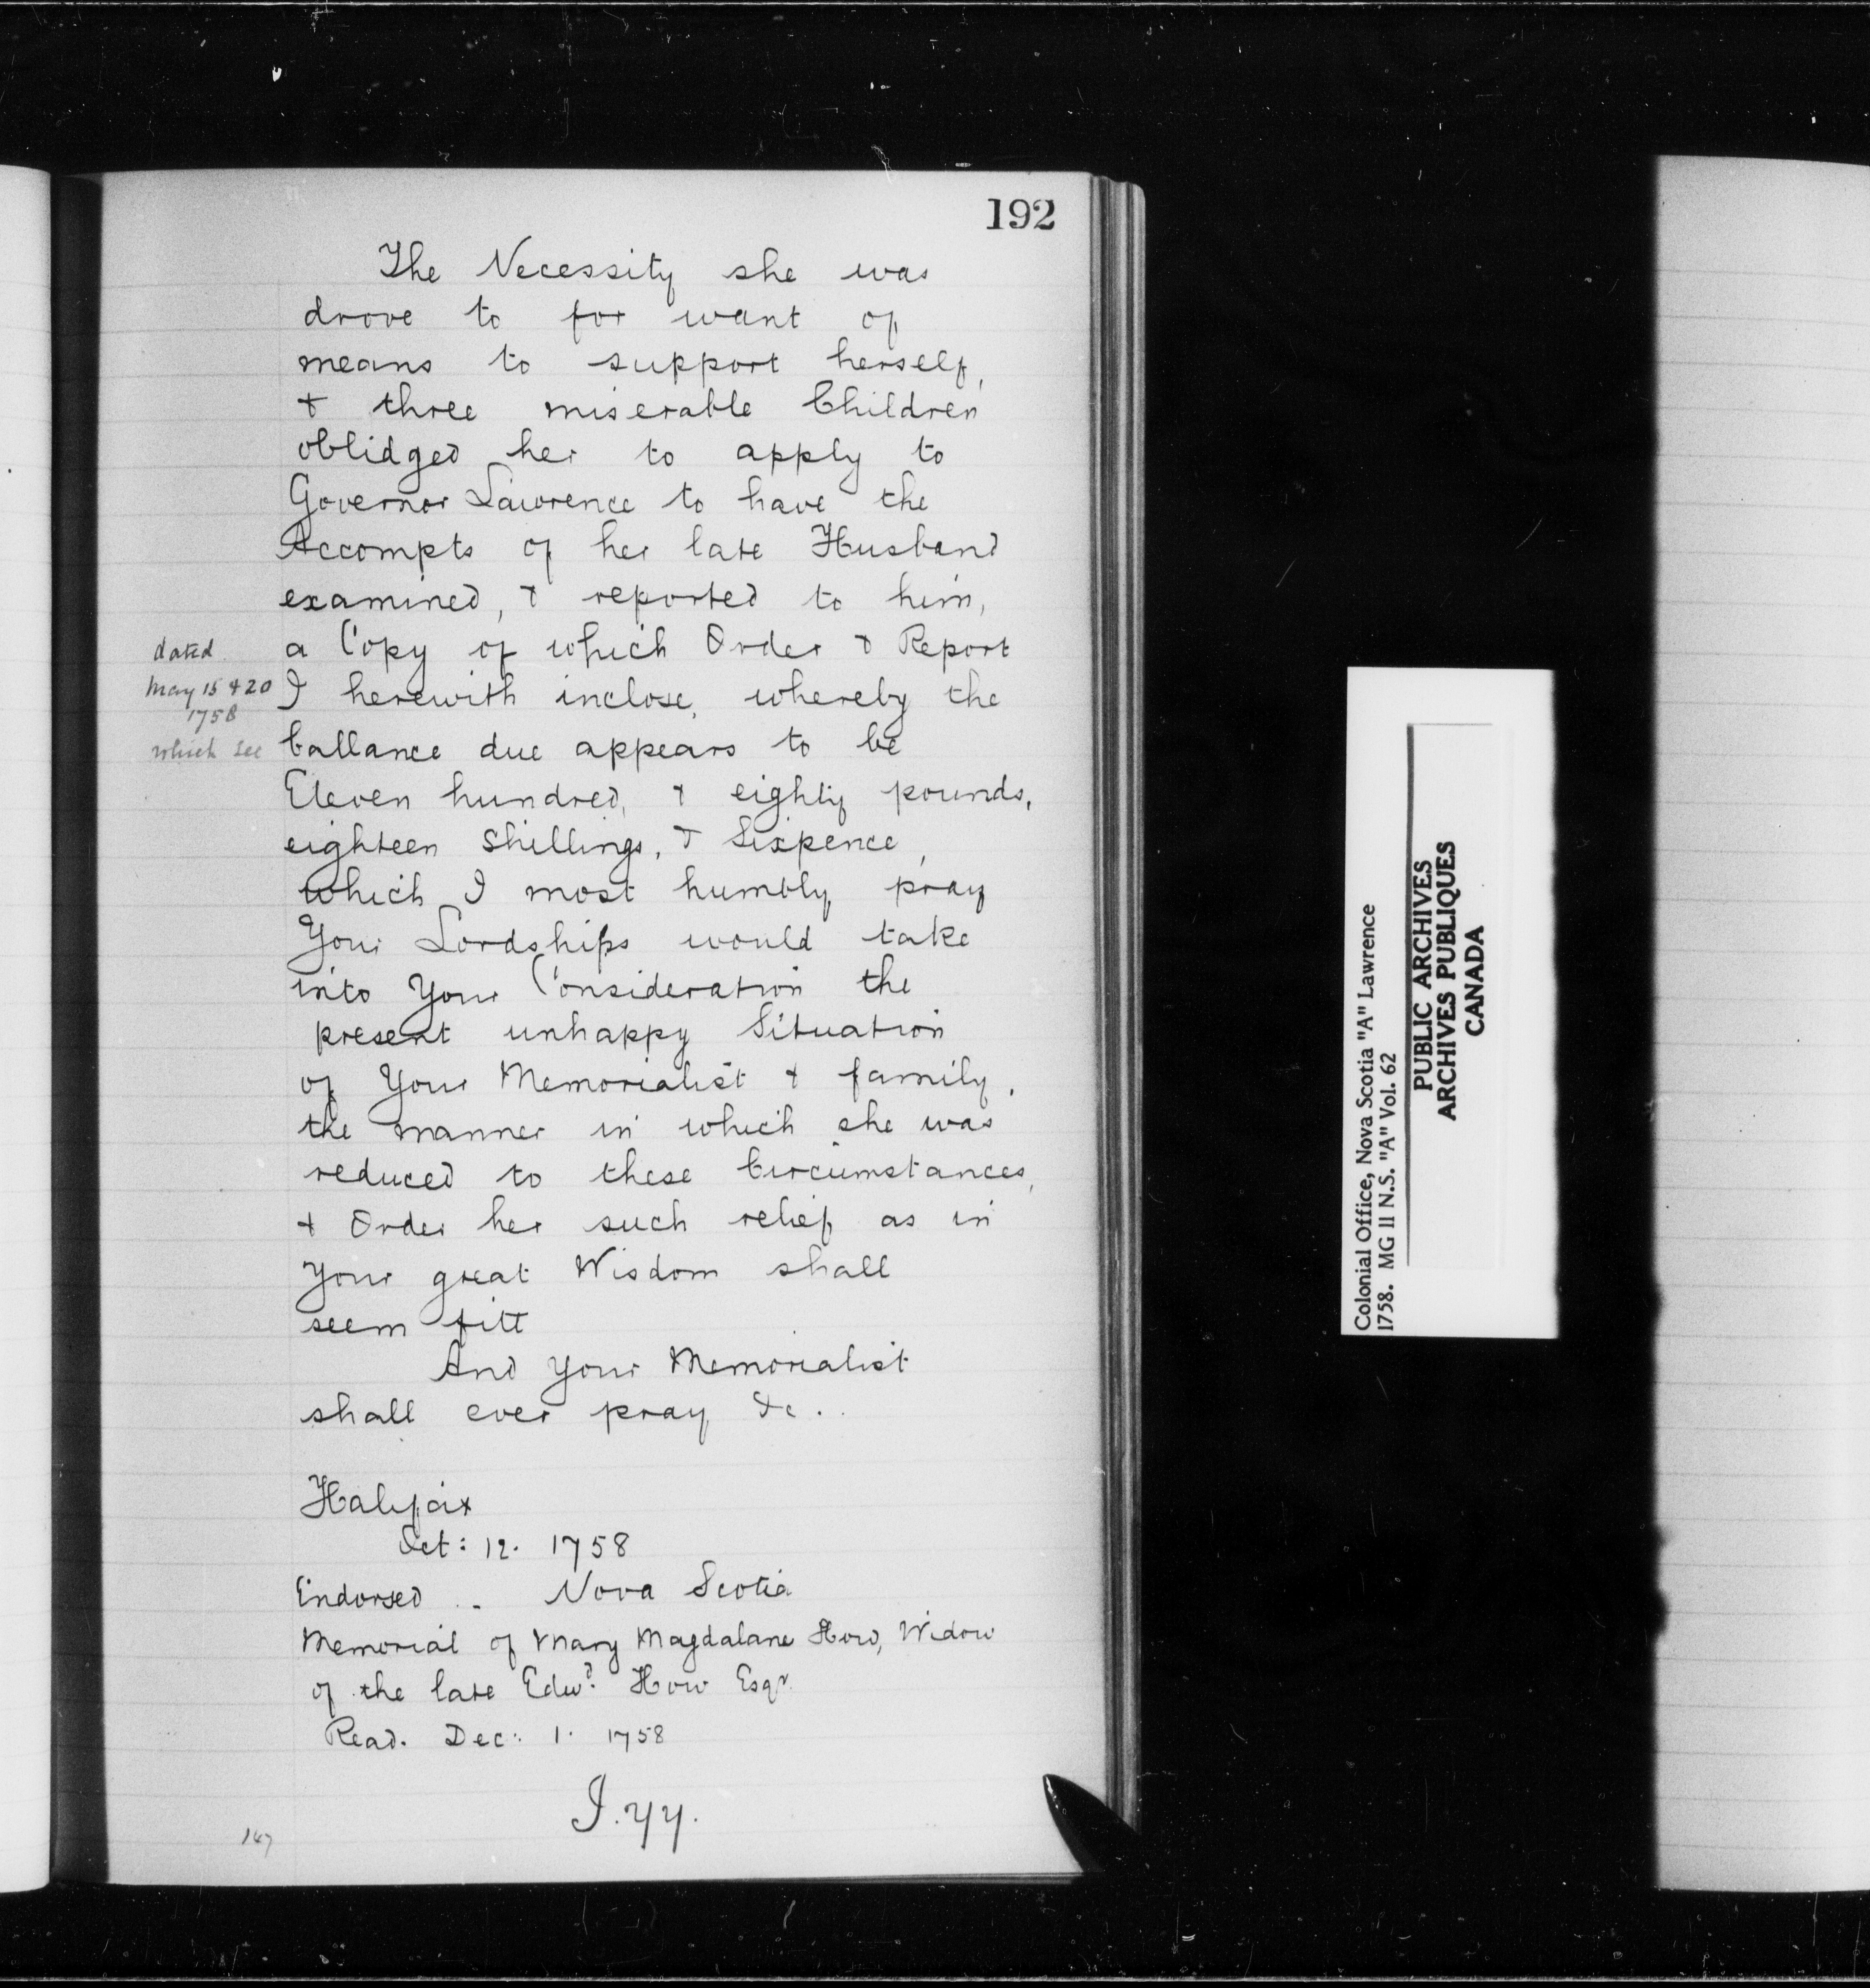 192
The Necessity she was
drove to for want of
means to support herself,
& three miserable Children
oblidged her to apply to
Governor Lawrence to have the
Accompts of her late Husband
examined, & reported to him,
a Copy of which Order & Report
I herewith inclose, whereby the
ballance due appears to be
Eleven hundred, & eighty pounds,
eighteen Shillings, & Sixpence,
which I most humbly pray
Your Lordships would take
into Your Consideration the
present unhappy Situation
of Your Memorialist & family,
the manner in which she was
reduced to these Circumstances,
& Order her such relief as in
Your great Wisdom shall
seem fitt
And Your Memorialist
shall ever pray &c.
dated
May 15 & 20
1758
which see
Halifax
Oct: 12. 1758
Endorsed .. Nova Scotia
Memorial of Mary Magdalane How, Widow
of the late Edwd. How Esqr.
Read. Dec: 1. 1758
I.yy.
147
Colonial Office, Nova Scotia "A" Lawrence
1758. MG 11 N.S. "A" Vol. 62
PUBLIC ARCHIVES
ARCHIVES PUBLIQUES
CANADA